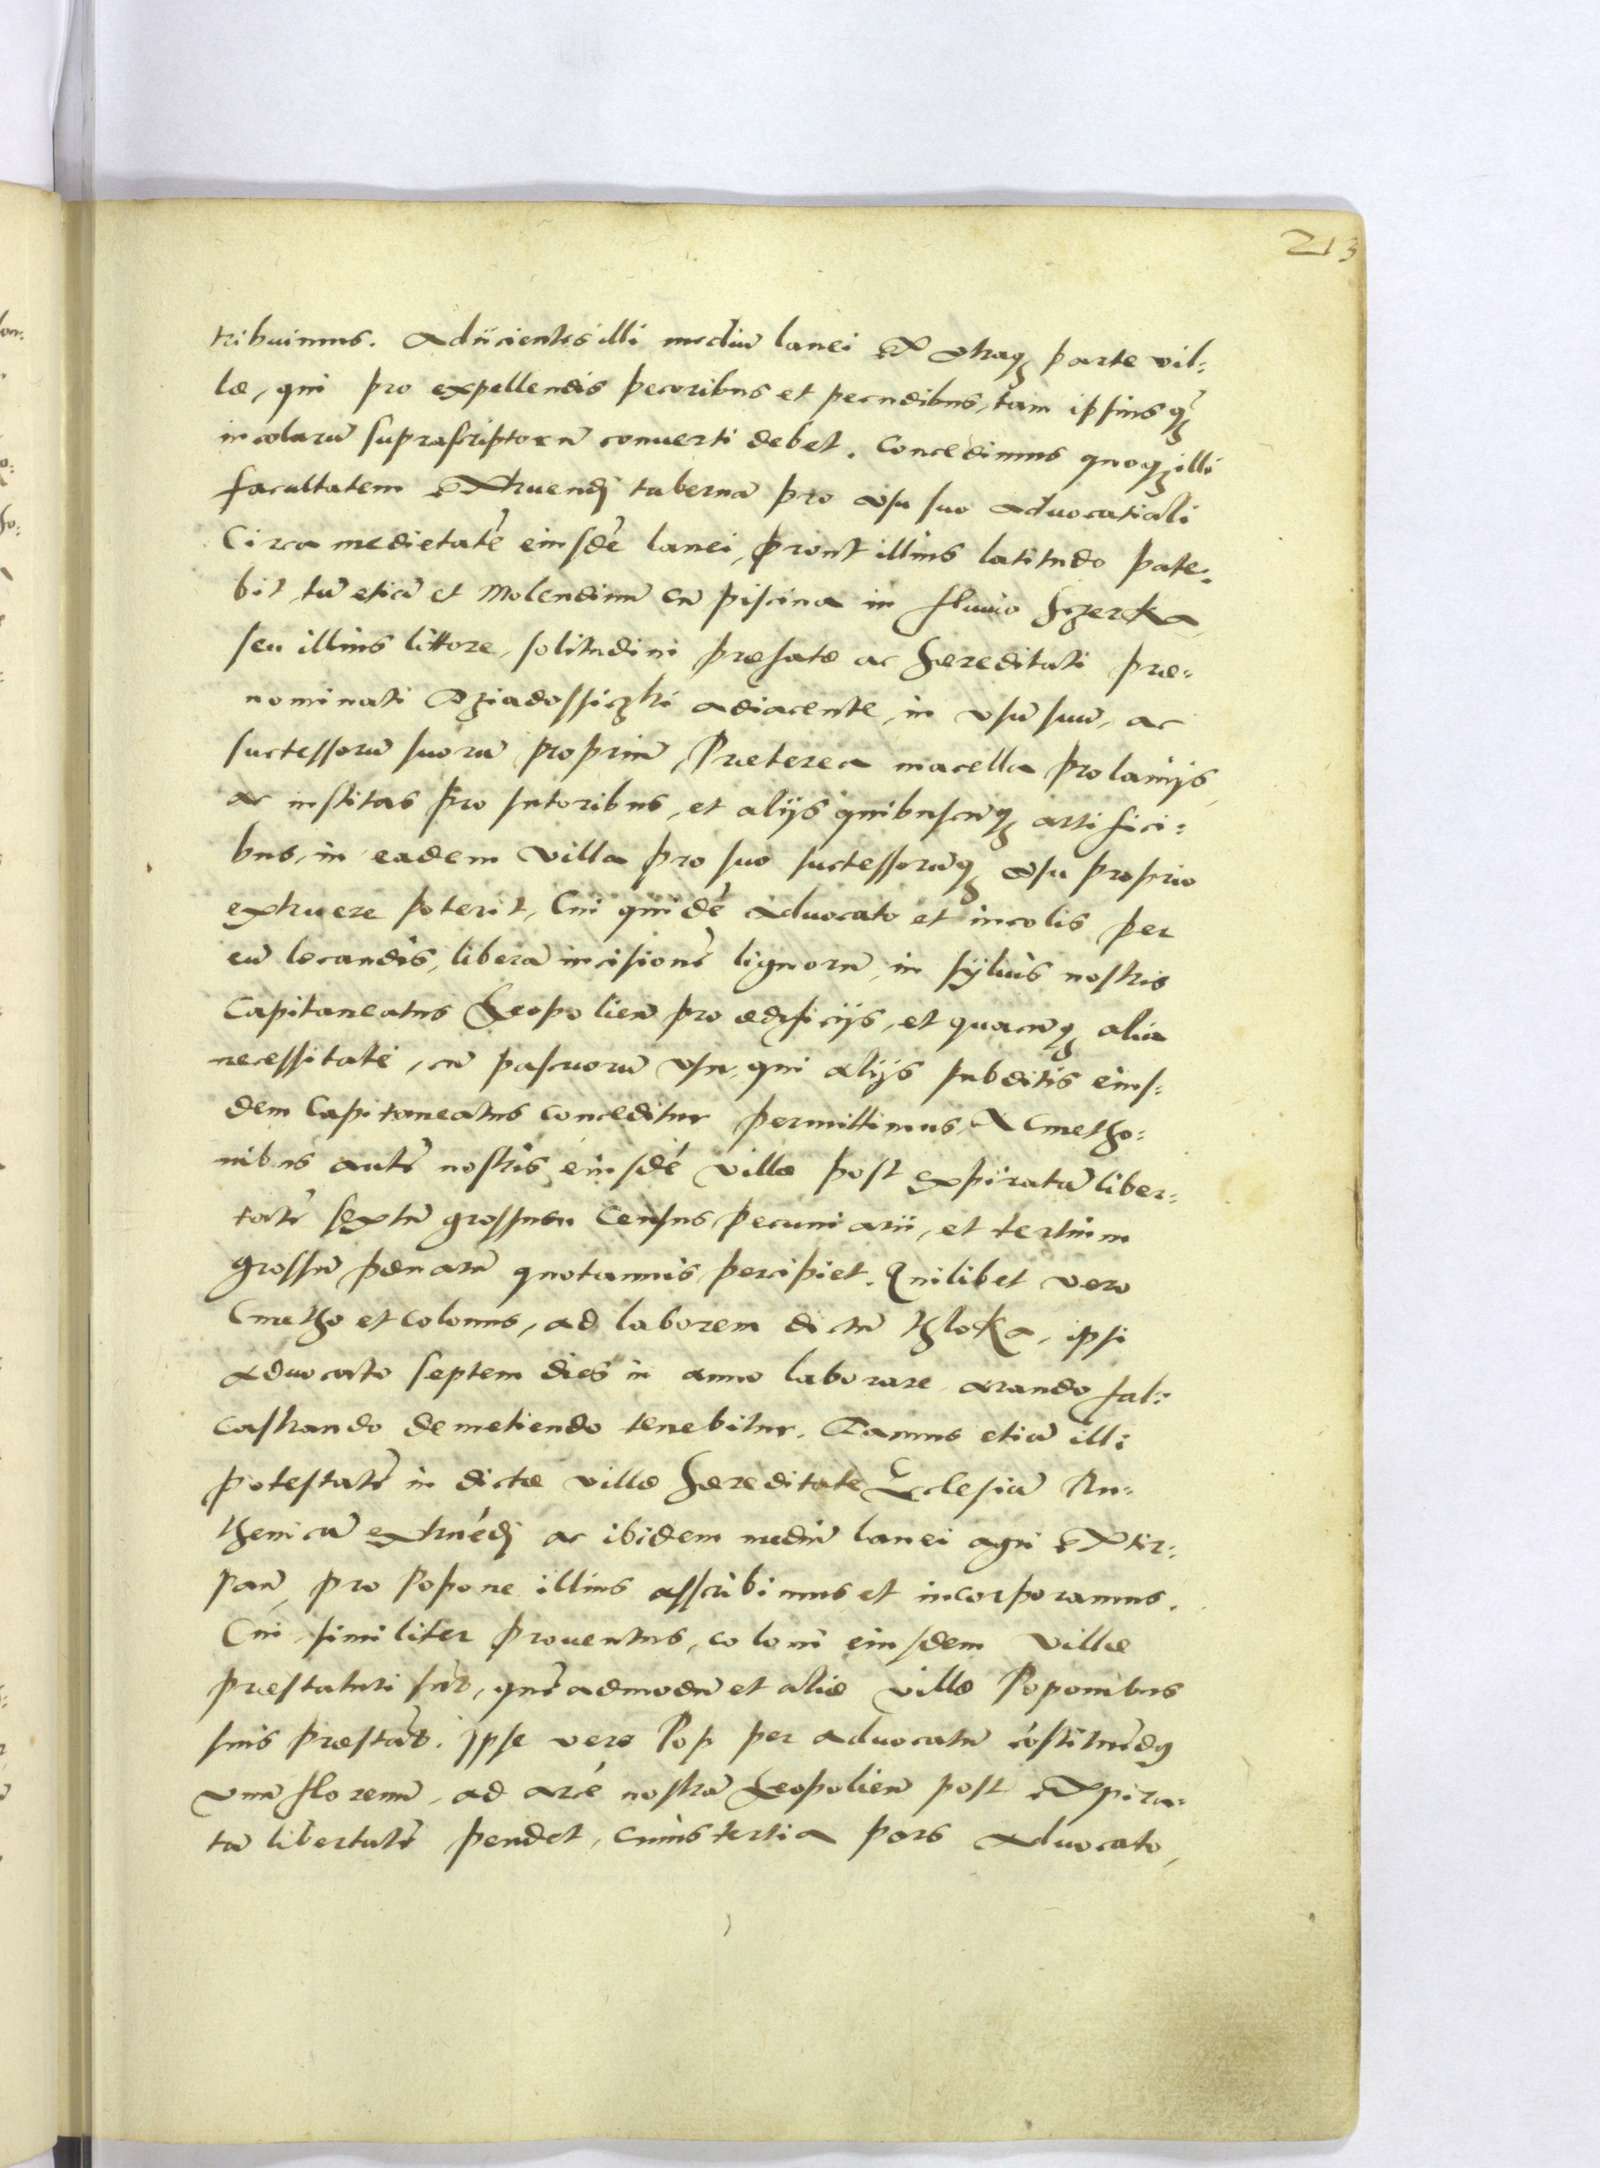 213
tribuimus. Adiicientes illi mediũ lanei ex vtraq3 parte vil:
læ, qui pro expellendis pecoribus et pecudibus, tam ipsius q̃3
incolarũ suprascriptorũ conuerti debet. Concedimus quoq3 illi
facultatem extruendj tabernã pro vsu suo aduocatiali
Circa medietatẽ eiusdẽ lanei, prout illius latitudo pate:
bit, tũ etiã et Molendinũ cũ piscina in fluuio Szerka,
seu illius littore, solitudini præfatæ ac hæreditati præ:
nominati Dziadossiczki adiacente, in vsũ suũ, ac
successorũ suorũ propriũ, Præterea macella pro lanijs,
ac institas pro sutoribus, et alijs quibuscũq3 artifici:
bus, in eadem villa pro suo successorũq3 vsu proprio
extruere poterit, Cui quidẽ Aduocato et incolis per
eũ locandis, liberã incisionẽ lignorũ, in syluis nostris
Capitaneatus Leopolieñ pro ædificijs, et quacũq3 alia
necessitate, cũ pascuorũ vsu, qui alijs subditis eius:
dem Capitaneatus conceditur permittimus, A Cmetho:
nibus autẽ nostris eiusdẽ villæ post expiratã liber:
tatẽ sextũ grossum Census pecuniarii, et tertium
grossũ pœnarũ quotannis percipiet. Quilibet vero
Cmetho et colonus, ad laborem dictũ thloka, ipsi
Aduocato septem dies in anno laborare arando fal:
castrando demetiendo tenebitur. Damus etiã illi
potestatẽ in dictæ villæ hæreditate Ecclesiã Ru:
thenicã extruẽdj ac ibidem mediũ lanei agri extir:
pañ, pro Popone illius asscribimus et incorporamus.
Cui similiter prouentus, coloni eiusdem villæ
præstaturi sũt, quẽadmodũ et aliæ villæ Poponibus
suis præstãt. Ipse vero Pop per aduocatũ cõstituẽdq
vnũ florenũ, ad arcẽ nostrã Leopolieñ post expira:
tã libertatẽ pendet, cuius tertia pars Aduocato,